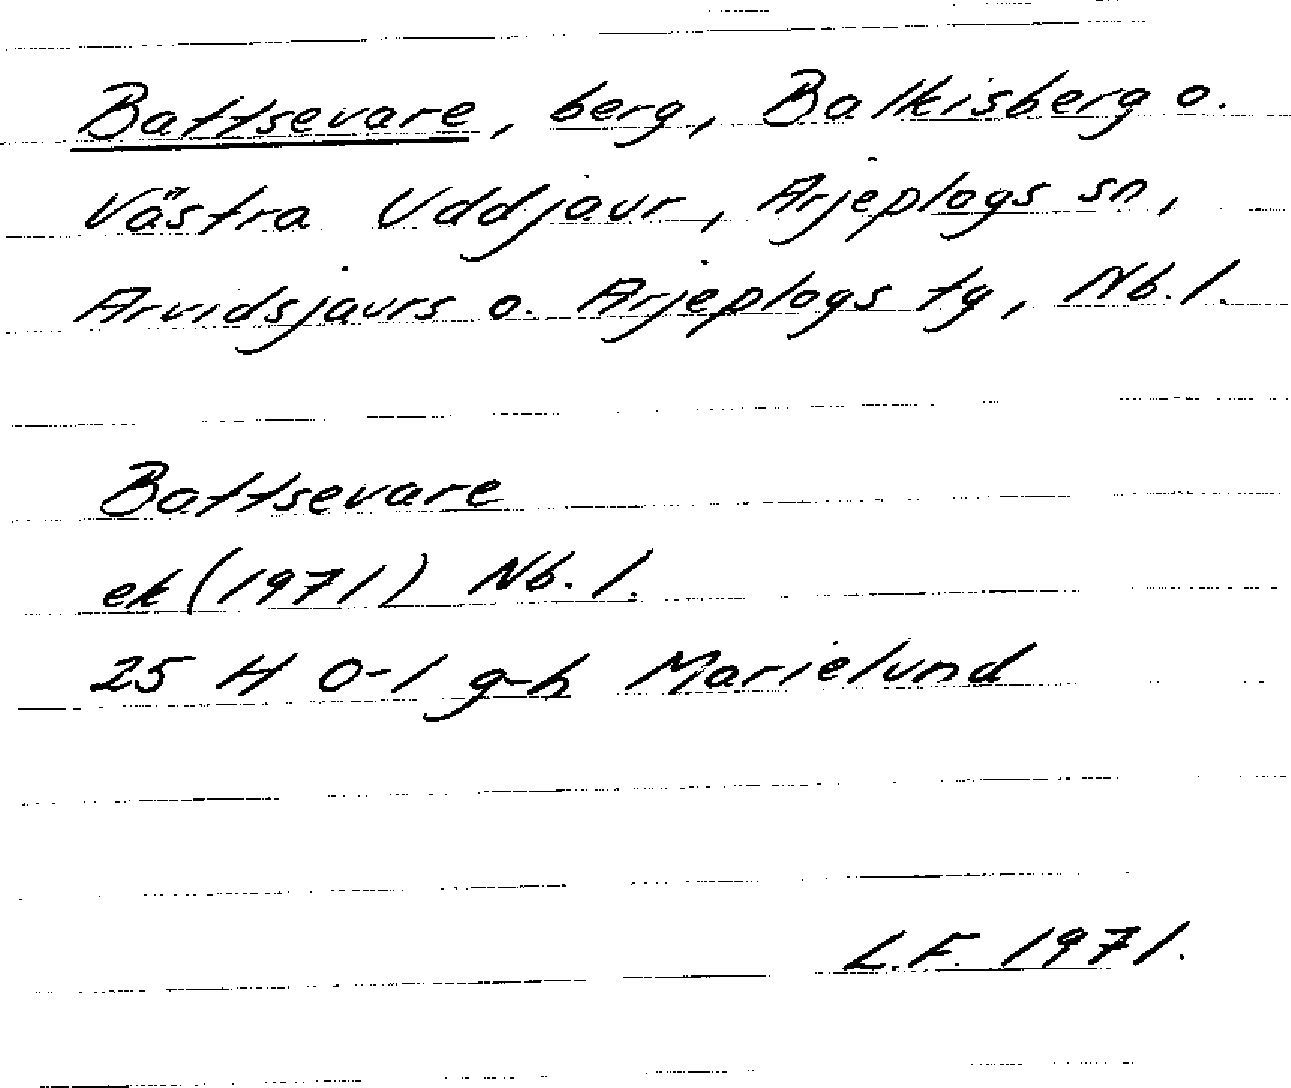 Battsevare, berg, Balkisberg o.
Västra Uddjaur, Arjeplogs sn,
Arvidsjaurs o. Arjeplogs tg, Nb. l.
Battsevare
ek (1971) Nb. l.
25 H 0-1 g-h Marielund
L.F. 1971.